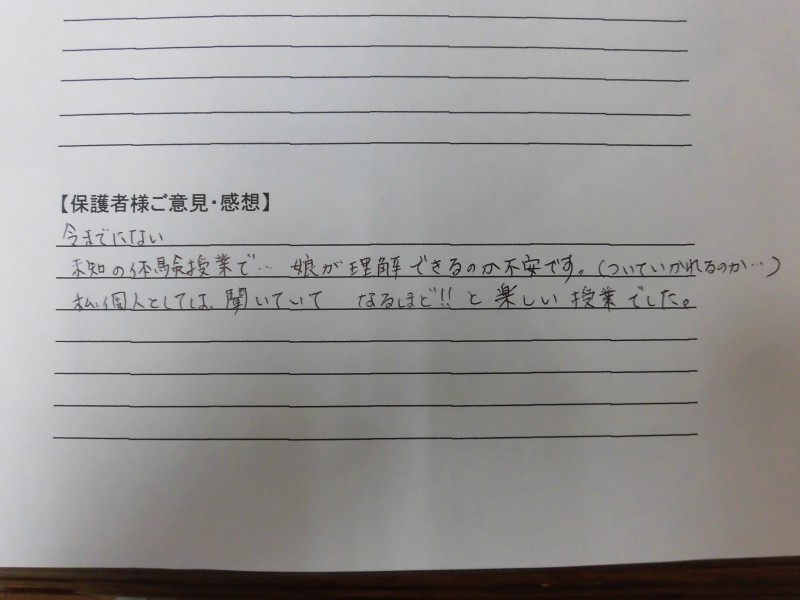 【保護者様ご意見・感想】
今までにない
未知の体験授業で… 娘が理解できるのか不安です。(ついていかれるのか…)
私個人としては、聞いていて なるほど!!と楽しい授業でした。